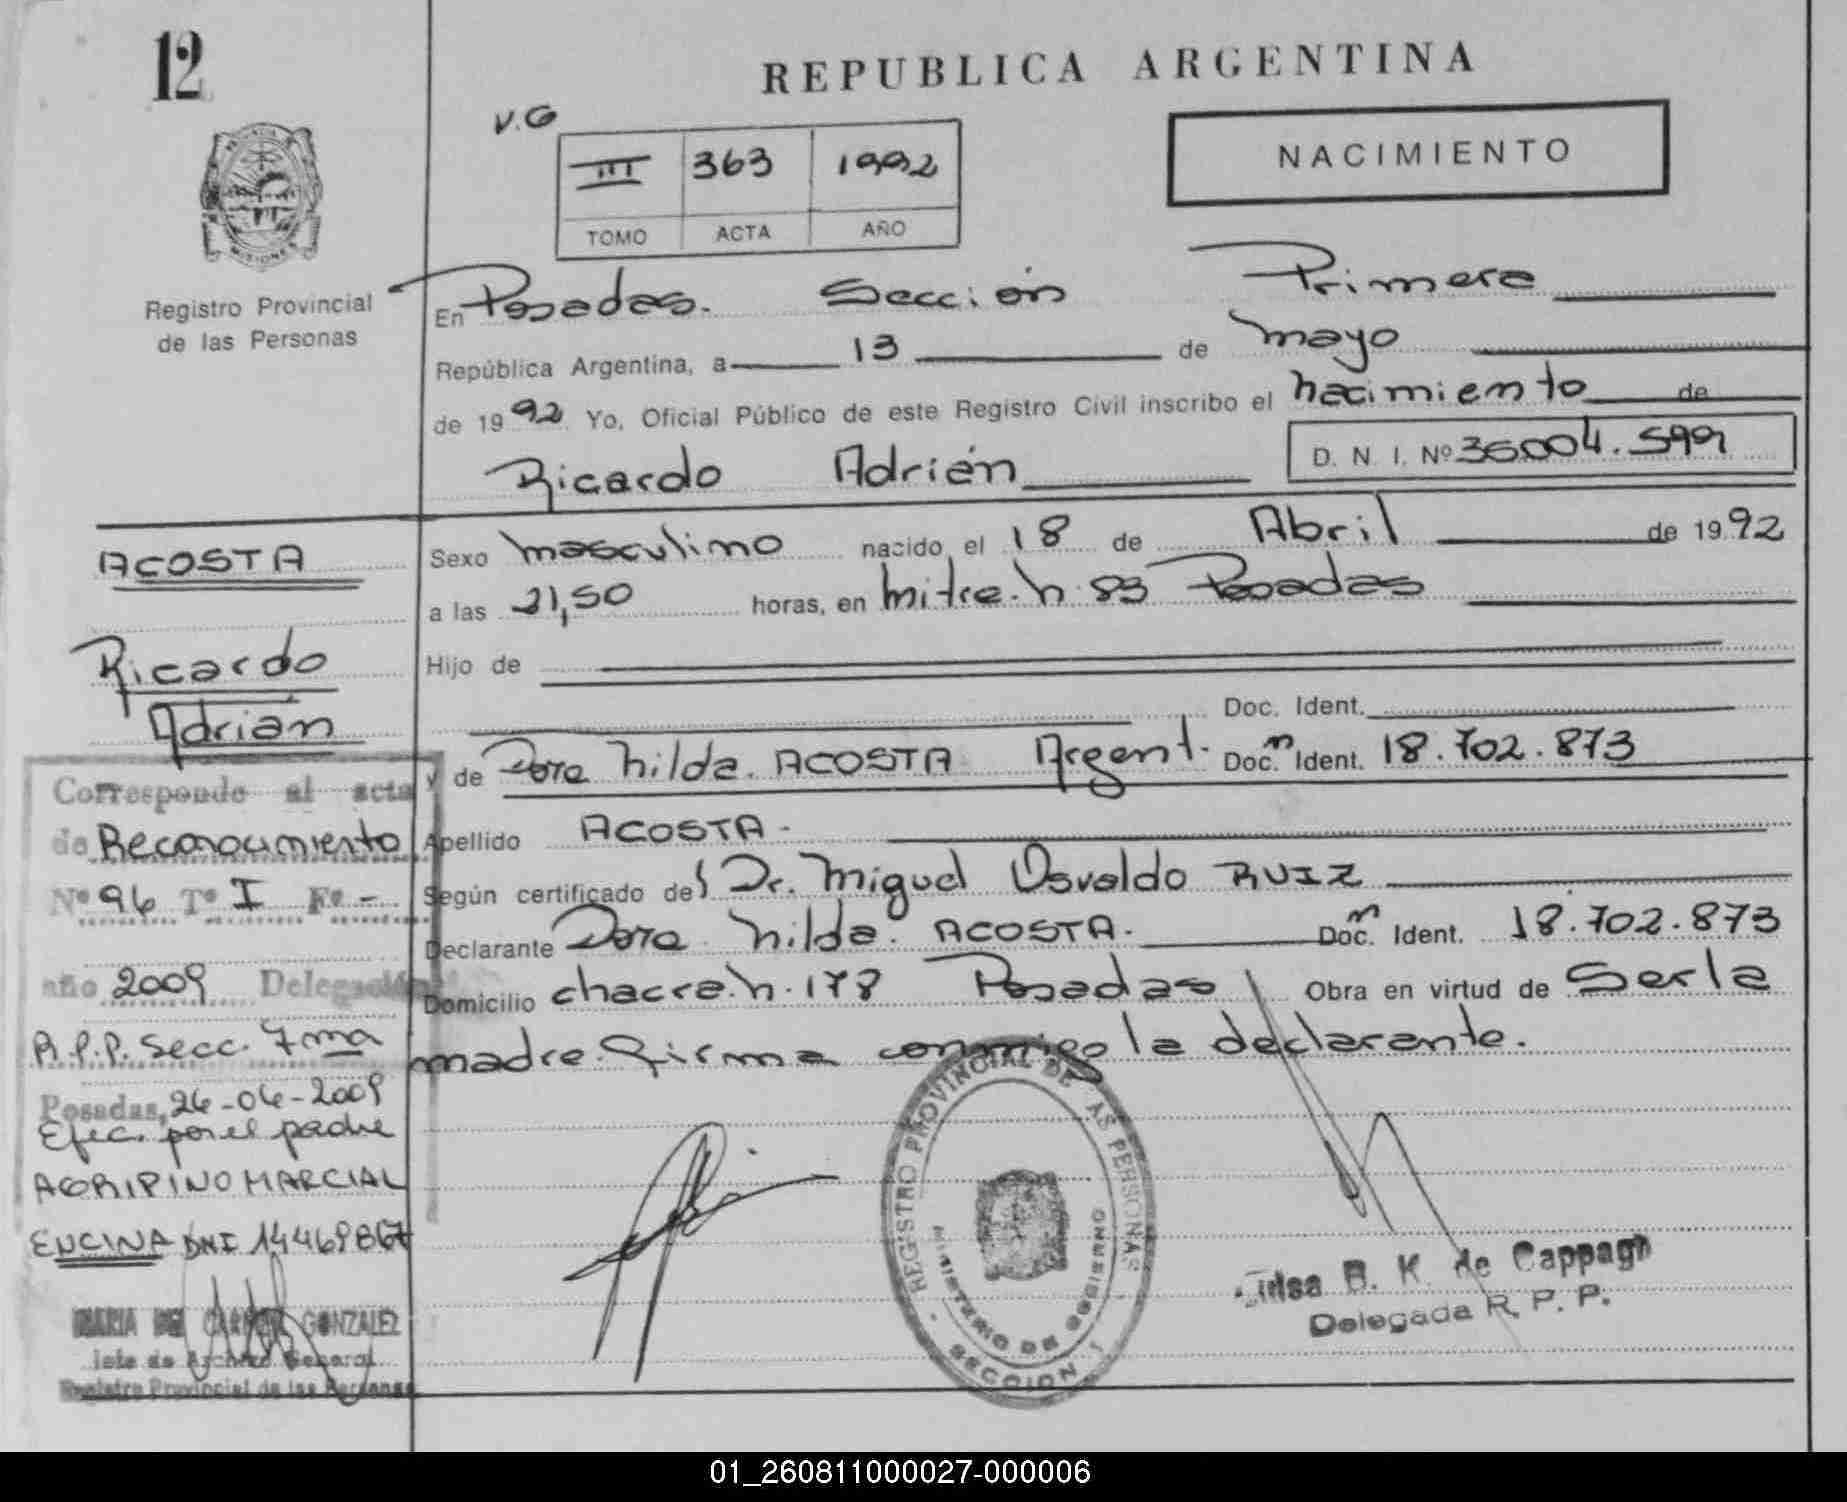 12
REPUBLICA ARGENTINA
V.G
III 363 1992
TOMO ACTA AÑO
NACIMIENTO
Registro Provincial
de las Personas
En Posadas. Sección Primera
República Argentina, a 13 de mayo
de 1992 Yo, Oficial Público de este Registro Civil inscribo el nacimiento de
Ricardo Adrián
D. N. I. Nº
ACOSTA
Ricardo
Adrián
Sexo masculino nacido el 18 de Abril de 1992
a las 21,50 horas, en mitre. n. 83 Posadas
Hijo de
Doc. Ident.
y de Dora nilda. ACOSTA Argent. Doc. Ident. 18.702.873
Apellido ACOSTA-
Según certificado del Dr. Miguel Osvaldo RUIZ
Declarante Dora nilda. ACOSTA. Doc. Ident. 18.702.873
Domicilio chacra. n. 178 Posadas Obra en virtud de Ser la
madre. firma conmigo la declarante.
Corresponde al acta
de Reconocimiento
Nº 96 Tº I Fº -
año 2009 Delegación
R.P.P. Secc. 7ma
Posadas, 26-06-2009
Efec. por el padre
AGRIPINO MARCIAL
ENCINA DNI
MARIA DEL CARMEN GONZALEZ
Jefe de Archivo General
Registro Provincial de las Personas
REGISTRO PROVINCIAL DE LAS PERSONAS
MINISTERIO DE GOBIERNO
SECCION 1
B. K. de Cappagli
Delegada R. P. P.
01_260811000027-000006